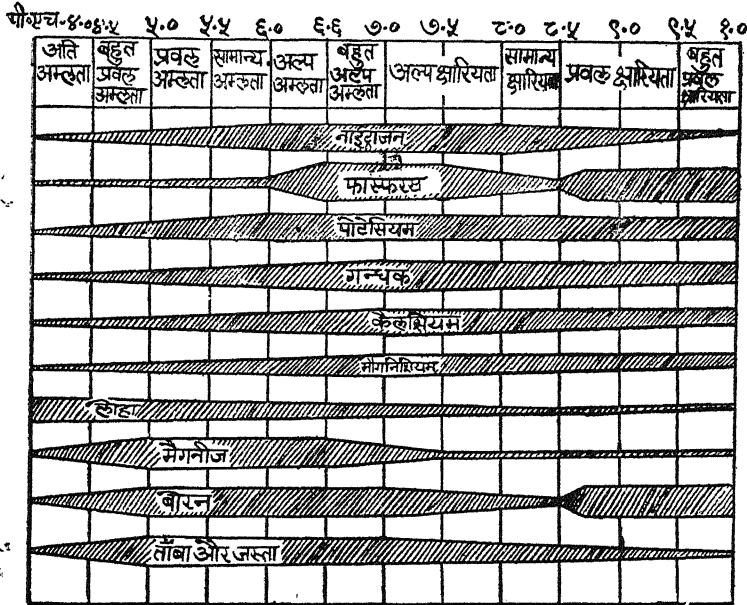 पी.एच-४.० ४.५ ५.० ५.५ ६.० ६.६ ७.० ७.५ ८.० ८.५ ९.० ९.५ १.०
अति अम्लता
बहुत प्रवल अम्लता
प्रवल अम्लता
सामान्य अम्लता
अल्प अम्लता
बहुत अल्प अम्लता
अल्प क्षारियता
सामान्य क्षारियता
प्रवल क्षारियता
बहुत प्रवल क्षारियता
नाइट्रोजन
फास्फरस
पोटेसियम
गन्धक
कैलसियम
मैगनिशियम
लोहा
मैगनीज
बोरन
ताँबा और जस्ता